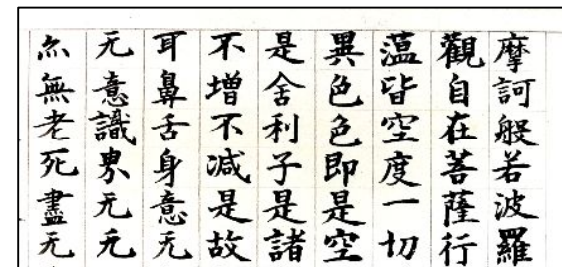 摩訶般若波羅
觀自在菩薩行
薀皆空度一切
異色色即是空
是舍利子是諸
不增不減是故
耳鼻舌身意无
无意識界无无
亦無老死盡无